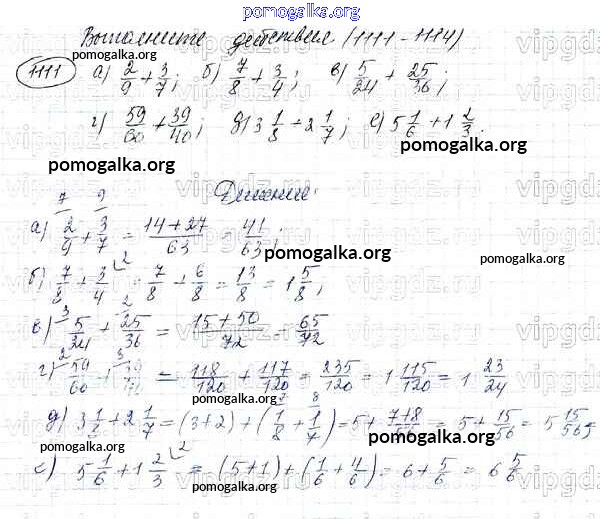 pomogalka.org
Выполните действия (1111-1114)
1111 а) 2/9 + 3/7; б) 7/8 + 3/4; в) 5/24 + 25/36;
г) 59/60 + 39/40; д) 3 1/8 + 2 1/7; е) 5 1/6 + 1 2/3.
pomogalka.org
pomogalka.org
vipgdz.ru
Решение:
а) 2/9 + 3/7 = (14+27)/63 = 41/63;
pomogalka.org
pomogalka.org
б) 7/8 + 3/4 = 7/8 + 6/8 = 13/8 = 1 5/8;
в) 5/24 + 25/36 = (15+50)/72 = 65/72
pomogalka.org
г) 59/60 + 39/40 = 118/120 + 117/120 = 235/120 = 1 115/120 = 1 23/24
pomogalka.org
д) 3 1/8 + 2 1/7 = (3+2) + (1/8 + 1/7) = 5 + (7+8)/56 = 5 + 15/56 = 5 15/56
pomogalka.org
pomogalka.org
е) 5 1/6 + 1 2/3 = (5+1) + (1/6 + 4/6) = 6 + 5/6 = 6 5/6
pomogalka.org